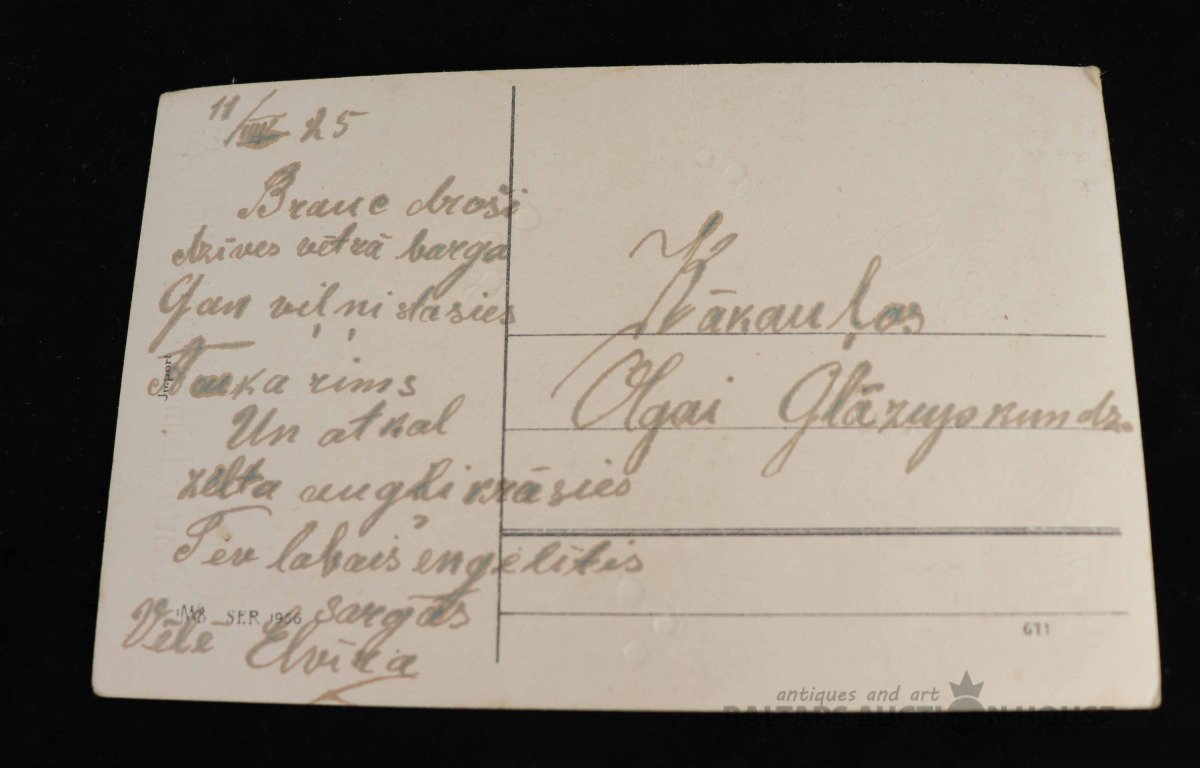 11/VIII 25
Brauc droši
dzīves vētrā bargā
Gan viļņi stāsies
Tauka rims
Un atkal
zelta augļi krāsies
Tev labais eņgelītis
sargās
Vēlē Elvīra
Import
SER 1966
Kākauļos
Olgai Glāzuņo kundz.
671
antiques and art
BALTARS AUCTION HOUSE